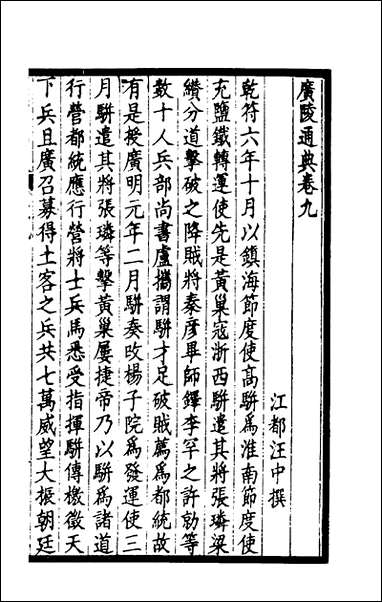 廣陵通典卷九
江都汪中撰
乾符六年十月以鎮海節度使高駢爲淮南節度使
充鹽鐵轉運使先是黃巢寇浙西駢遣其將張璘梁
纘分道擊破之降賊將秦彥畢師鐸李罕之許勍等
數十人兵部尚書盧攜謂駢才足破賊薦爲都統故
有是授廣明元年二月駢奏改楊子院爲發運使三
月駢遣其將張璘等擊黃巢屢捷帝乃以駢爲諸道
行營都統應行營將士兵馬悉受指揮駢傳檄徵天
下兵且廣召募得土客之兵共七萬威望大振朝廷